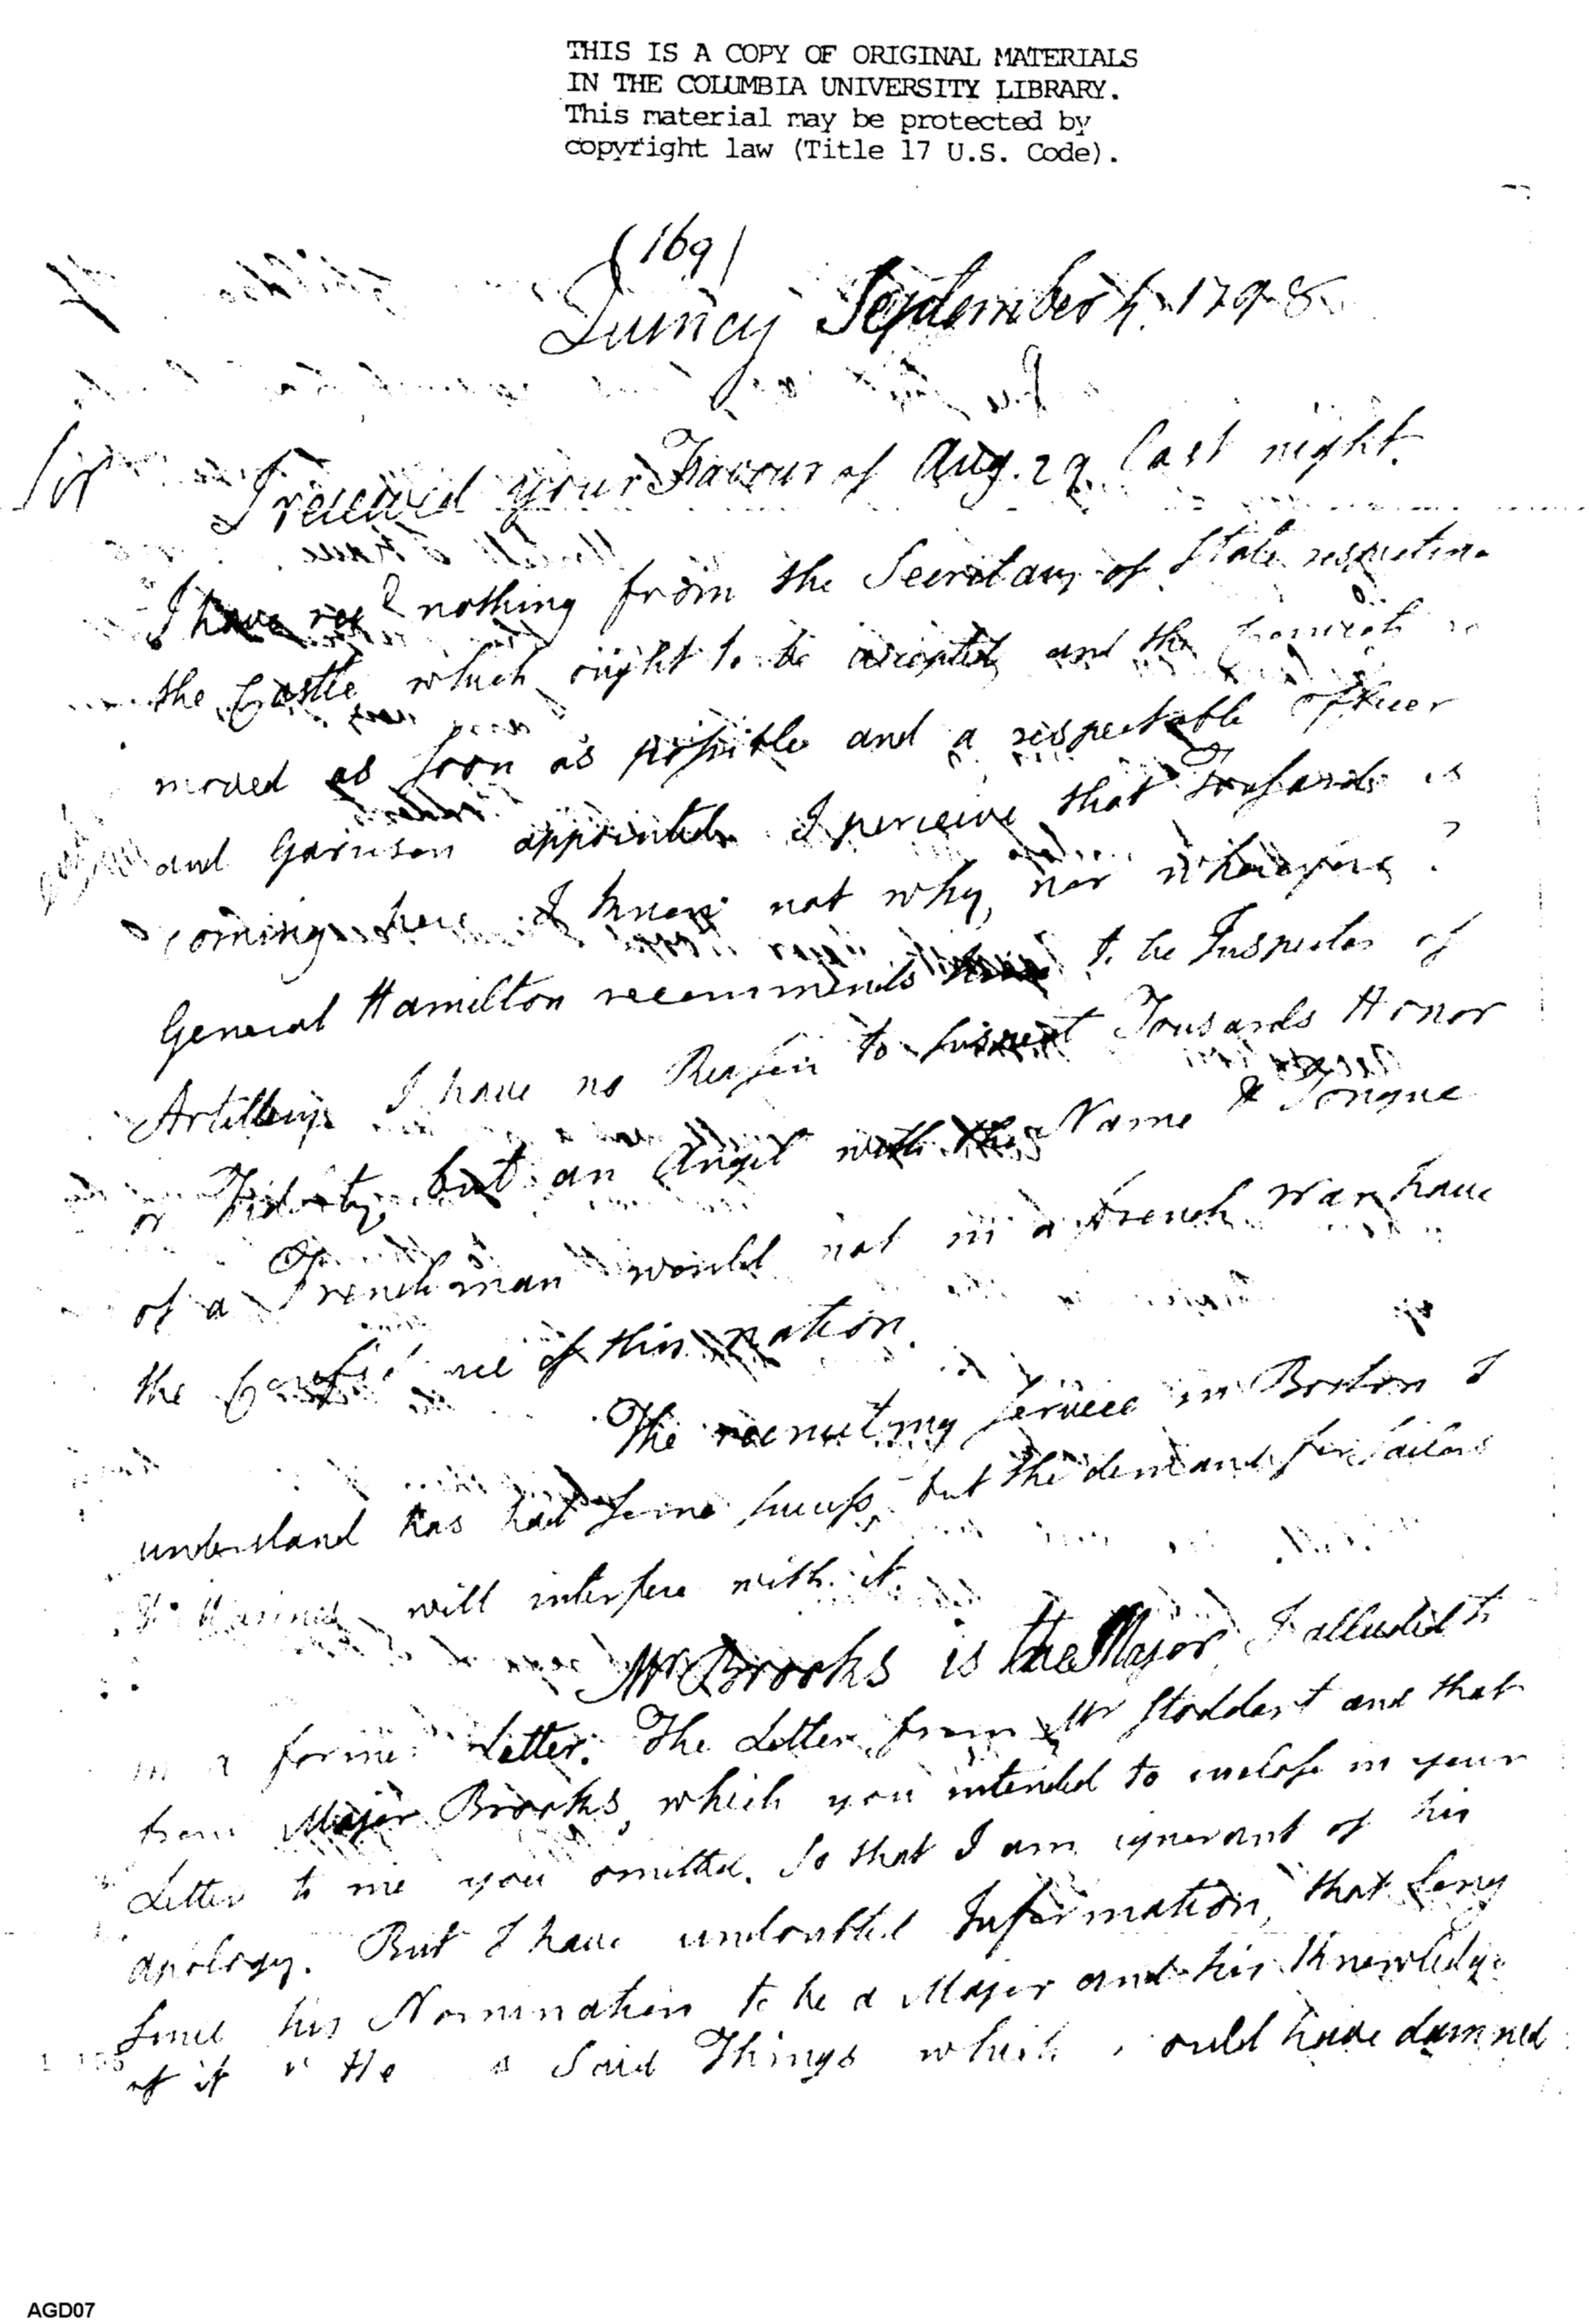 THIS IS A COPY OF ORIGINAL MATERIALS
IN THE COLUMBIA UNIVERSITY LIBRARY.
This material may be protected by
copyright law (Title 17 U.S. Code).
(169)
Quincy September 4. 1798
Sir
I received your Favour of Aug. 29. last night.
I have recd nothing from the Secretary of State respecting
the Castle which ought to be accepted and the
moved as soon as possible and a respectable officer
and Garrison appointed. I perceive that Tousards is
coming here I know not why, nor wherefore?
General Hamilton recommends to be Inspector of
Artillery. I have no Reason to suspect Tousards Honor
or Fidelity, but an Angel with the Name & Tongue
of a Frenchman would not in a French War have
the Confidence of this nation.
The recruiting Service in Boston I
understand has had some success, but the demand for Sailors
& Marines will interfere with it.
Mr Brooks is the Major, I alluded to
in a former Letter. The Letter from Mr Stoddert and that
from Major Brooks, which you intended to inclose in your
Letter to me you omitted. So that I am ignorant of his
apology. But I have undoubted Information, that long
since his Nomination to be a Major and his Knowledge
of it He Said Things which would have damned
AGD07